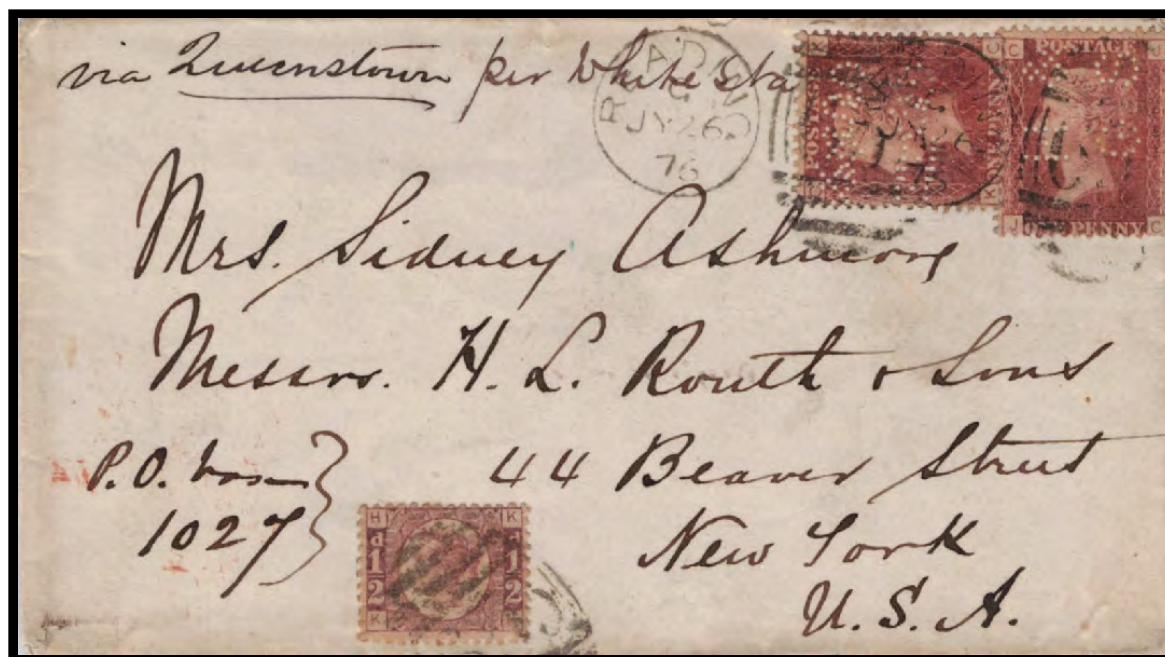 via Queenstown per White Sta
READING
JY 26
76
POSTAGE
PENNY
Mrs. Sidney Ashmore
Messrs. H. L. Routh & Sons
P.O. box 44 Beaver Street
1027 New York
U. S. A.
H K
d 1/2 1/2
K